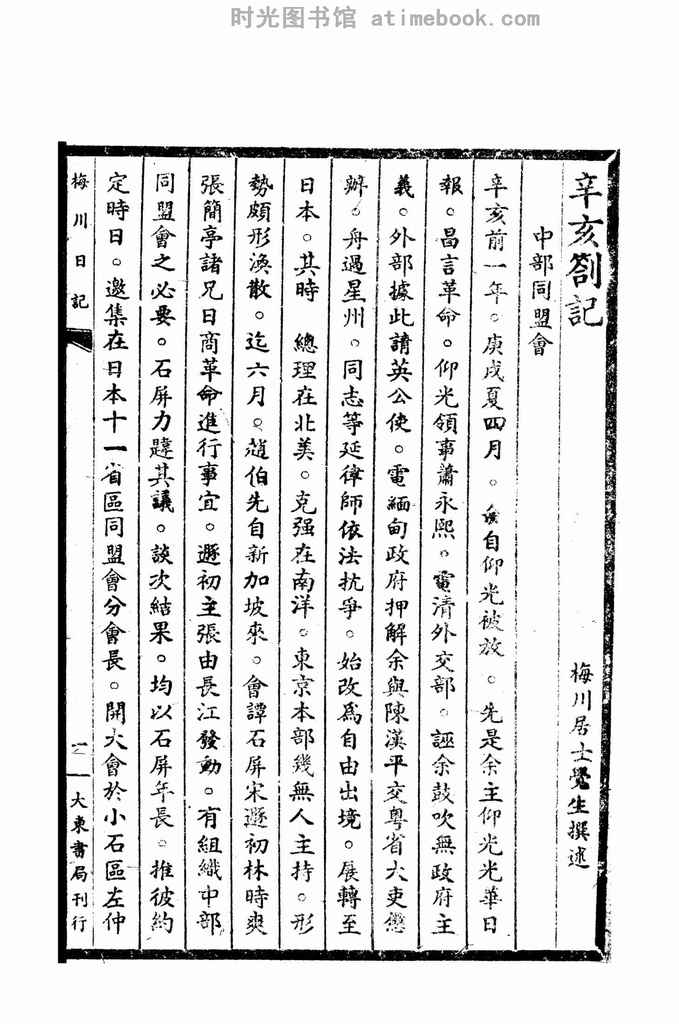 时光图书馆 atimebook.com
辛亥劄記
梅川居士覺生撰述
中部同盟會
辛亥前一年。庚戌夏四月。余自仰光被放。先是余主仰光光華日
報。昌言革命。仰光領事蕭永熙。電清外交部。誣余鼓吹無政府主
義。外部據此請英公使。電緬甸政府押解余與陳漢平交粵省大吏懲
辦。舟過星州。同志等延律師依法抗爭。始改為自由出境。展轉至
日本。其時　總理在北美。克强在南洋。東京本部幾無人主持。形
勢頗形渙散。迄六月。趙伯先自新加坡來。會譚石屏宋遯初林時爽
張簡亭諸兄日商革命進行事宜。遯初主張由長江發動。有組織中部
同盟會之必要。石屏力韙其議。談次結果。均以石屏年長。推彼約
定時日。邀集在日本十一省區同盟會分會長。開大會於小石區左仲
梅川日記
一
大東書局刊行